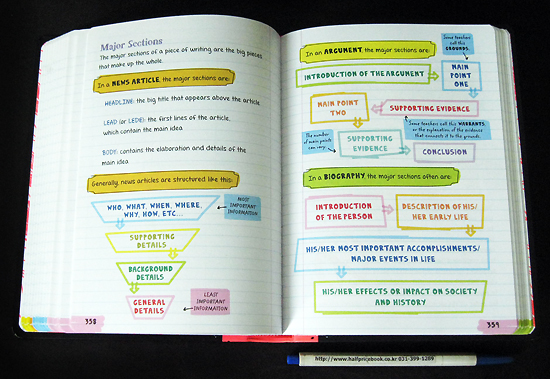 Major Sections
The major sections of a piece of writing are the big pieces
that make up the whole.
In a NEWS ARTICLE, the major sections are:
HEADLINE: the big title that appears above the article
LEAD (or LEDE): the first lines of the article,
which contain the main idea
BODY: contains the elaboration and details of the
main idea
Generally, news articles are structured like this:
WHO, WHAT, WHEN, WHERE,
WHY, HOW, ETC...
MOST
IMPORTANT
INFORMATION
SUPPORTING
DETAILS
BACKGROUND
DETAILS
GENERAL
DETAILS
LEAST
IMPORTANT
INFORMATION
358
In an ARGUMENT, the major sections are:
Some teachers
call this
GROUNDS.
INTRODUCTION OF THE ARGUMENT
MAIN
POINT
ONE
MAIN POINT
TWO
SUPPORTING EVIDENCE
Some teachers call this WARRANTS,
or the explanation of the evidence
that connects it to the grounds.
The number
of main points
can vary.
SUPPORTING
EVIDENCE
CONCLUSION
In a BIOGRAPHY, the major sections often are:
INTRODUCTION
OF THE PERSON
DESCRIPTION OF HIS/
HER EARLY LIFE
HIS/HER MOST IMPORTANT ACCOMPLISHMENTS/
MAJOR EVENTS IN LIFE
HIS/HER EFFECTS OR IMPACT ON SOCIETY
AND HISTORY
359
http://www.halfpricebook.co.kr 031-399-1289